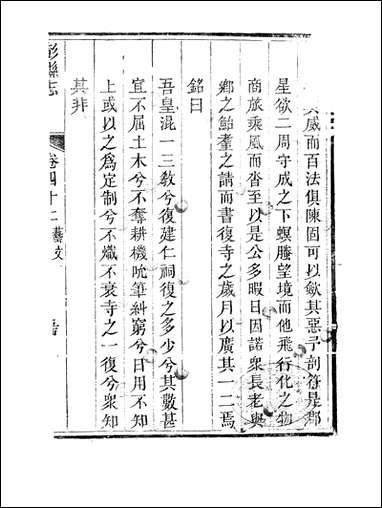 其威而百法俱陳固可以歛其惡予剖符是郡
星欲二周守成之下螟螣望境而他飛行化之物
商旅乘風而沓至以是公多暇日因諾衆長老與
鄉之鮐耋之請而書復寺之歲月以廣其一二焉
銘曰
吾皇混一三教兮復建仁祠復之多少兮其數甚
宜不屈土木兮不奪耕機吮筆糾窮兮日用不知
上或以之爲定制兮不熾不衰寺之一復兮衆知
其非
彭縣志
卷四十二藝文